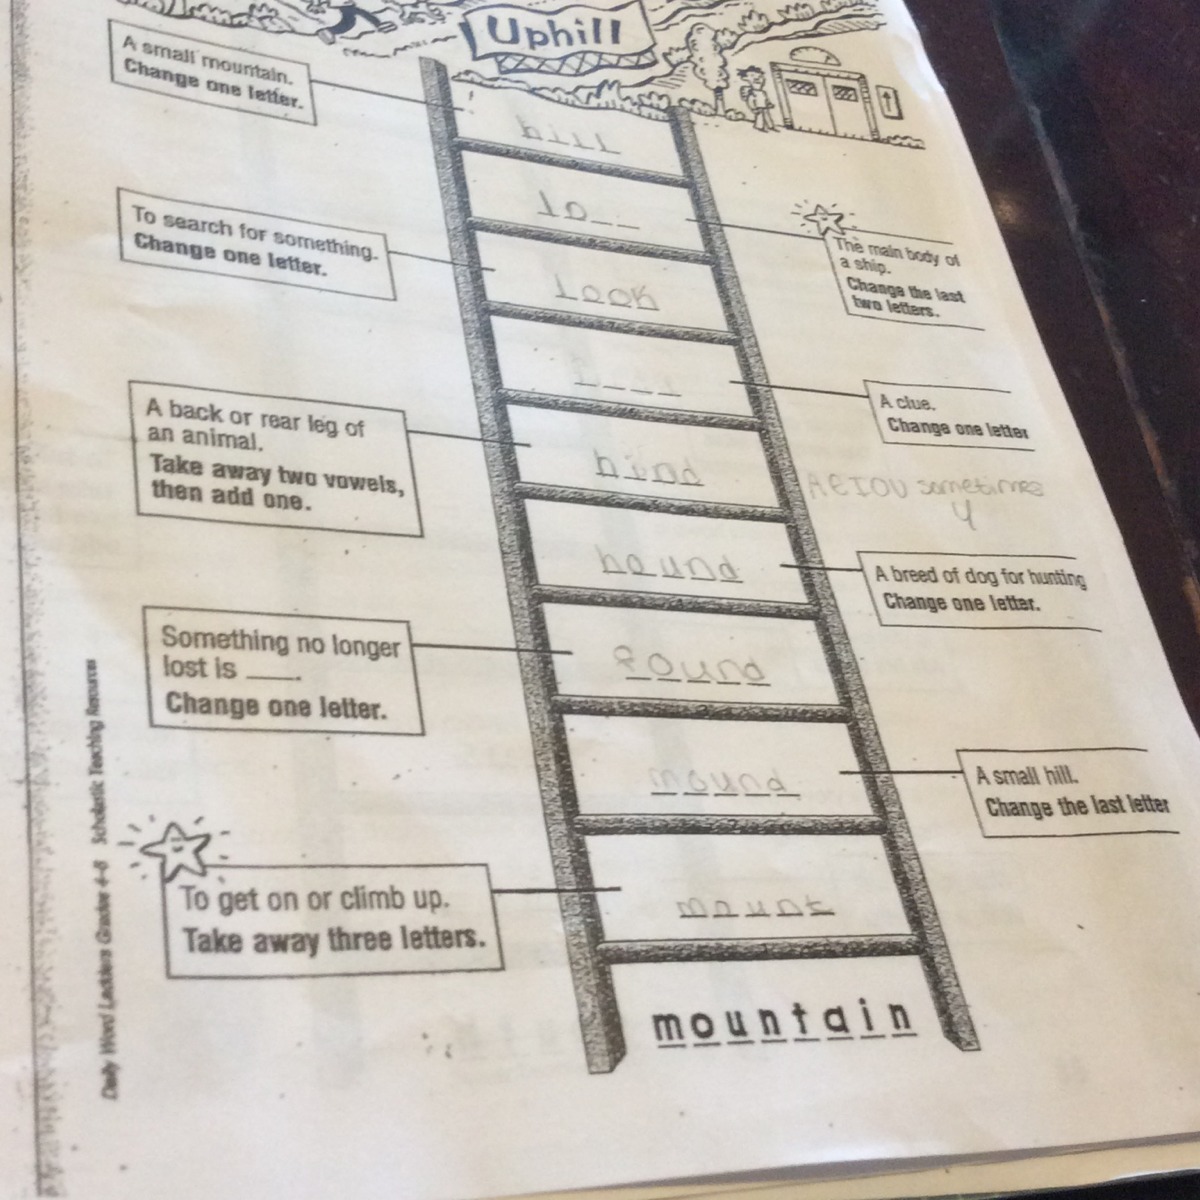 Uphill
A small mountain.
Change one letter.
hill
lo__
The main body of
a ship.
Change the last
two letters.
To search for something.
Change one letter.
look
A clue.
Change one letter
A back or rear leg of
an animal.
Take away two vowels,
then add one.
hind
AEIOU sometimes
y
hound
A breed of dog for hunting
Change one letter.
Something no longer
lost is ____.
Change one letter.
found
mound
A small hill.
Change the last letter
To get on or climb up.
Take away three letters.
mount
mountain
Daily Word Ladders Grades 4–6 Scholastic Teaching Resources